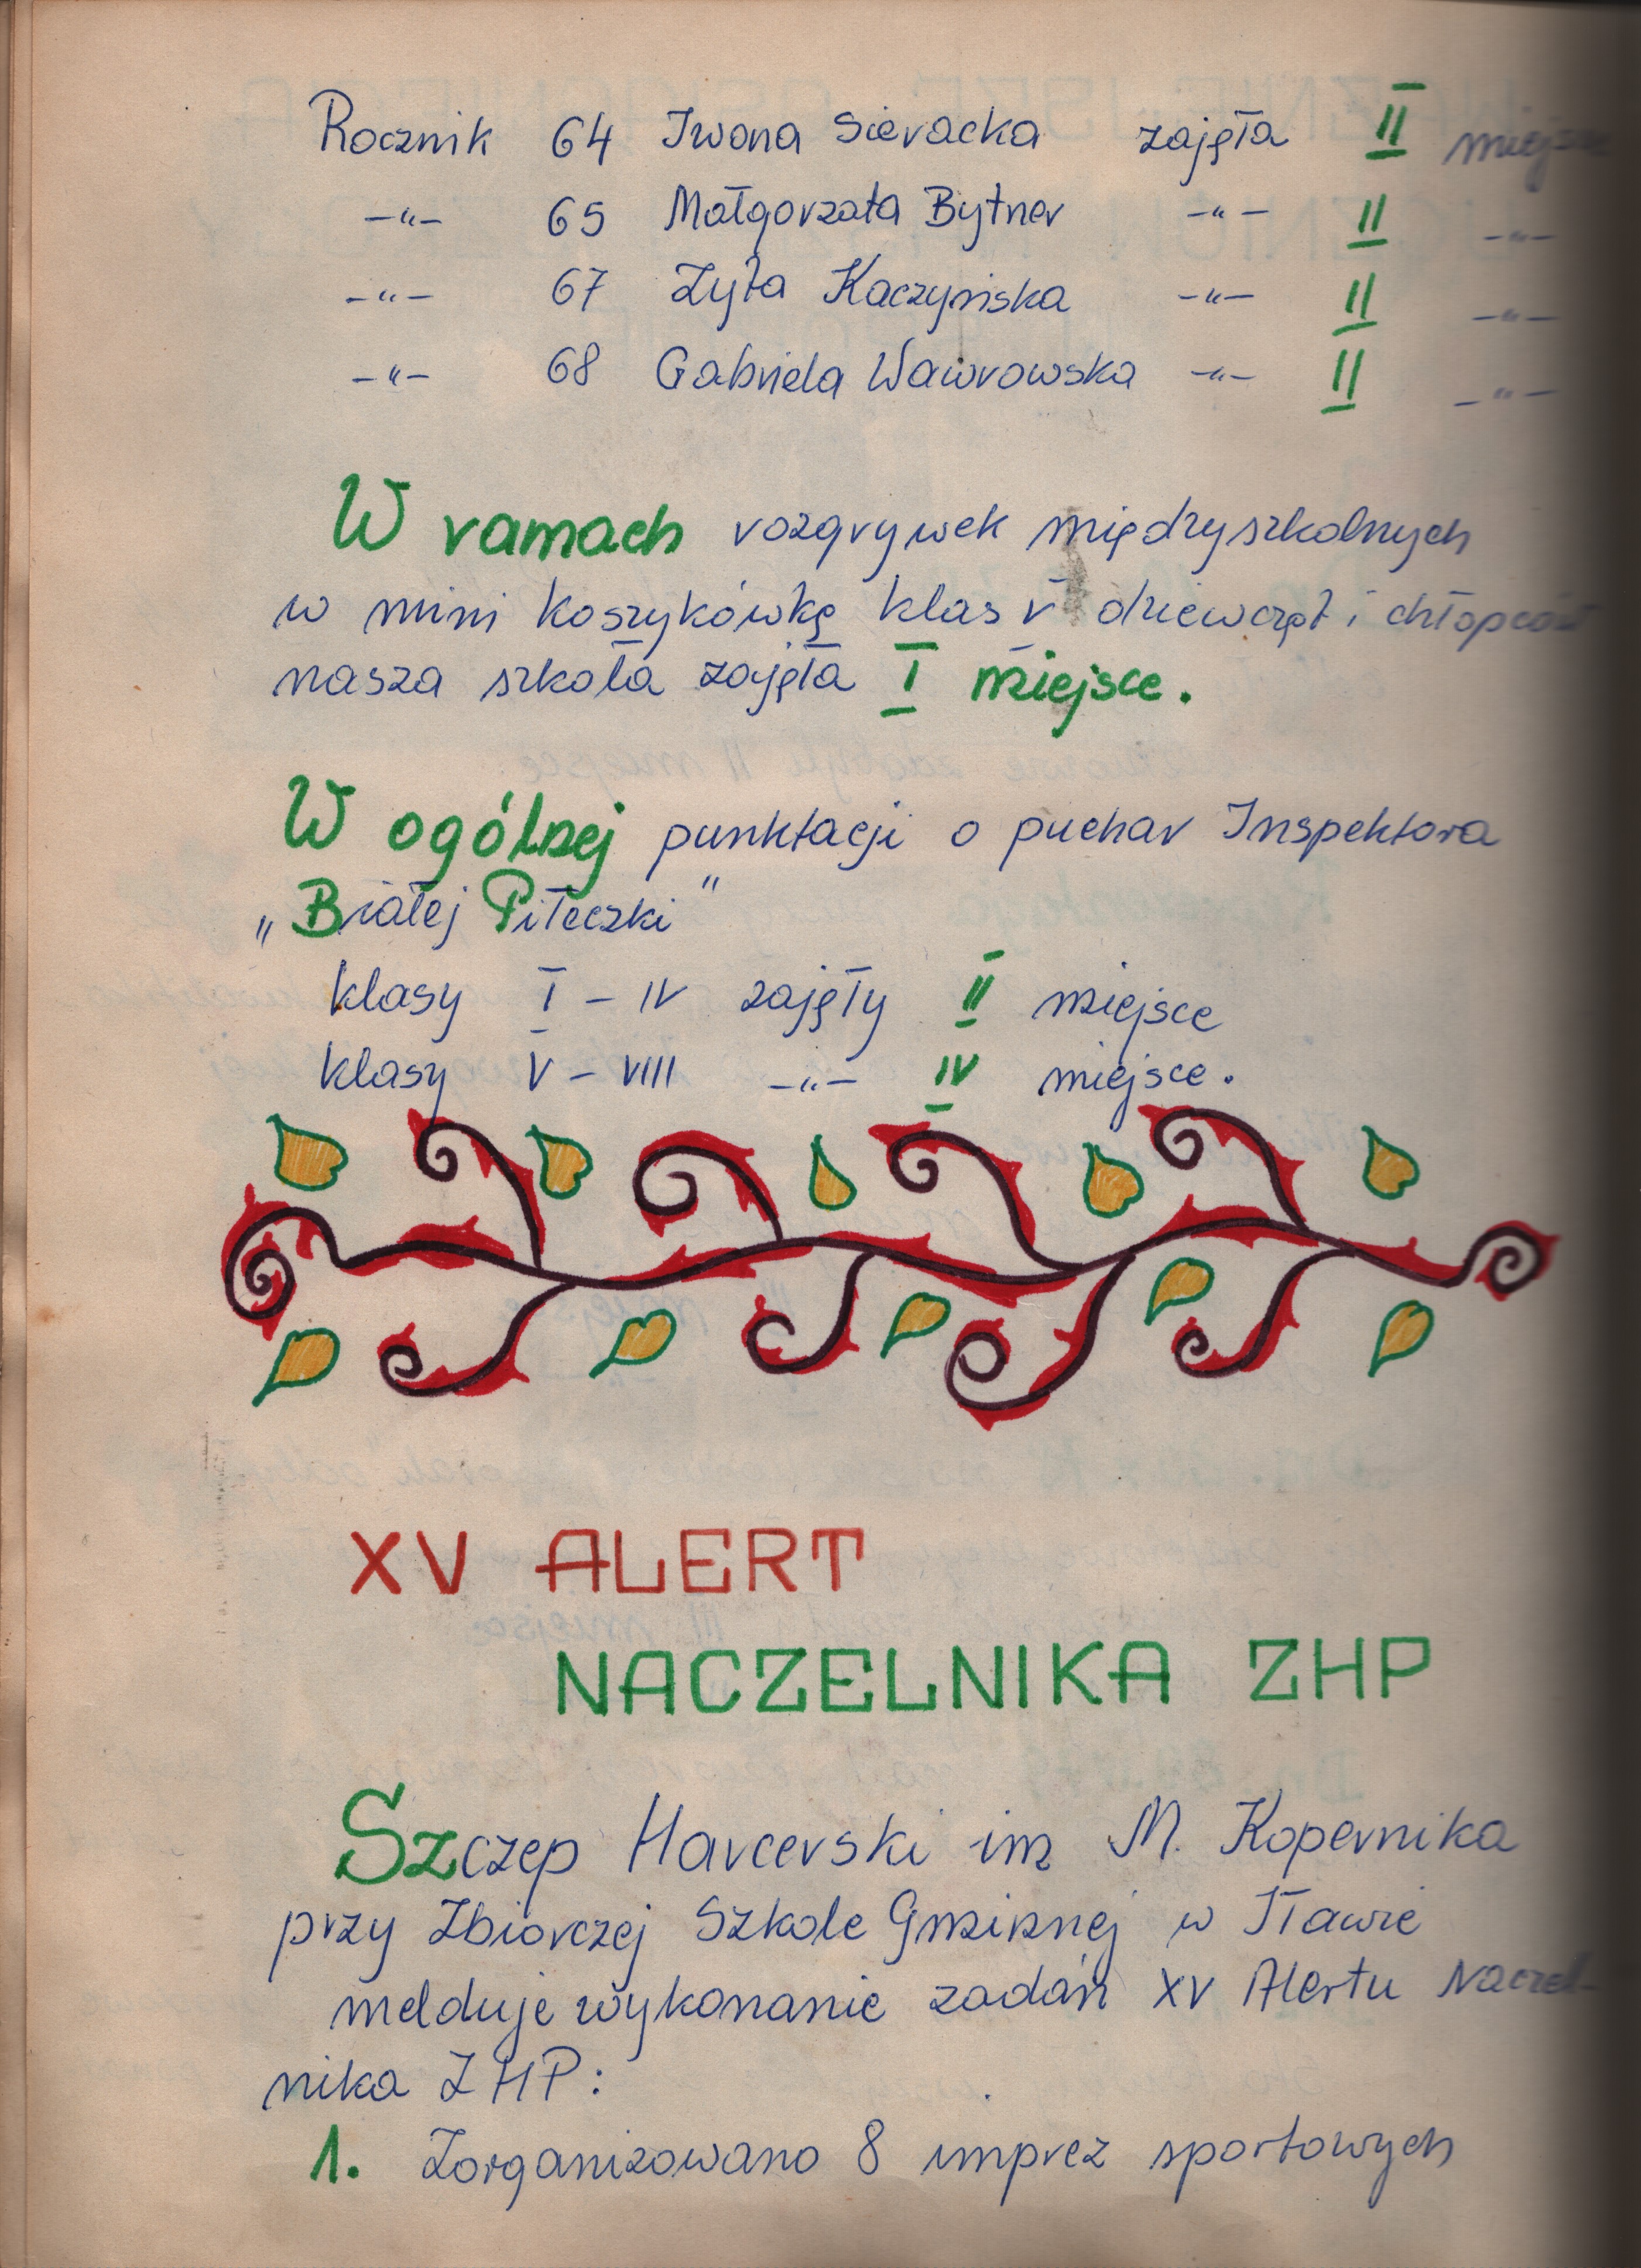 Rocznik 64 Iwona Sieracka zajęła II miejsce
-"- 65 Małgorzata Bytner -"- II -"-
-"- 67 Zyta Kaczyńska -"- II -"-
-"- 68 Gabriela Wawrowska -"- II -"-
W ramach rozgrywek międzyszkolnych
w mini koszykówkę klas V dziewcząt i chłopców
nasza szkoła zajęła I miejsce.
W ogólnej punktacji o puchar Inspektora
„Białej Piłeczki"
klasy I - IV zajęły II miejsce
klasy V - VIII -"- IV miejsce.
XV ALERT
NACZELNIKA ZHP
Szczep Harcerski im M. Kopernika
przy Zbiorczej Szkole Gminnej w Iławie
melduje wykonanie zadań XV Alertu Naczel-
nika ZHP:
1. Zorganizowano 8 imprez sportowych